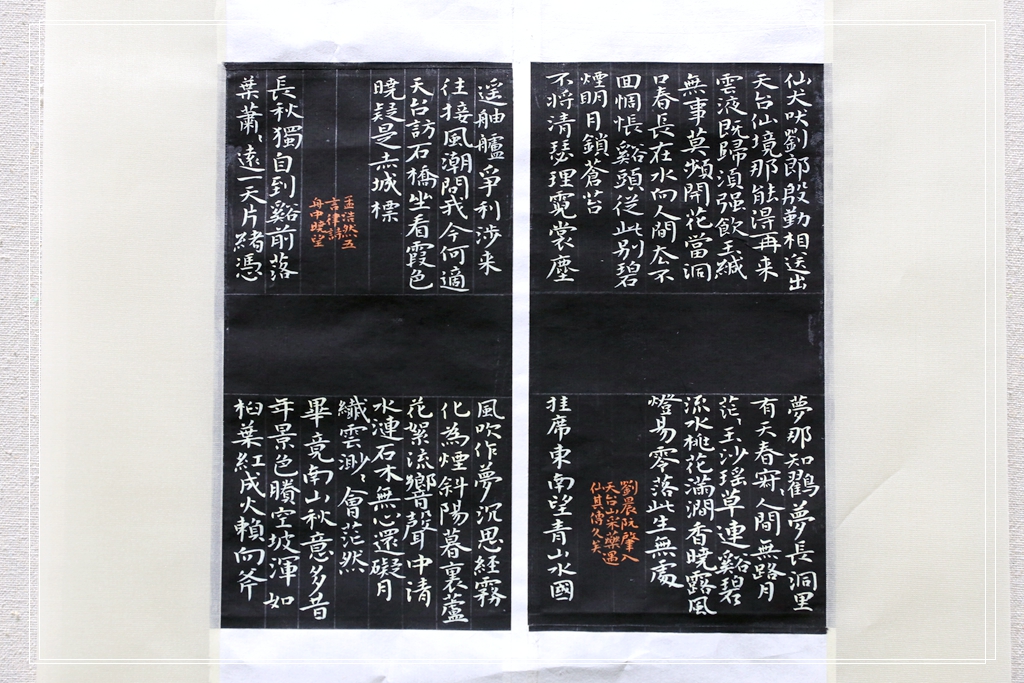 仙犬吠劉郎殷勤相送出
天台仙境那能得再来
雲液既歸須强飲玉緘
無事莫頻開花當洞
口春長在水向人間定不
回惆悵谿頭從此別碧
煙明月鎖蒼苔
不將清瑟理霓裳塵
夢那知鸖夢長洞里
有天春寂〻人間無路月
茫〻玉沙瑶草連谿碧
流水桃花滿澗香曉露風
燈易零落此生無處
劉晨阮肇入
天台山采藥遇
仙其傳久矣
挂席東南望青山水國
遥舳艫爭利涉来
往接風潮問我今何適
天台訪石橋坐看霞色
曉疑是赤城標
孟浩然五
言律詩
舟中曉望
長秋獨自到谿前落
葉蕭〻遠一天片緒憑
風吹作夢沉思経霧
化為煙斜陽暮裏蘆
花絮流響聲中清
水漣石木無心還礙月
纎雲渺〻會茫然
畢竟南山秋意多昔
年景色賸空坡渾如
桕葉紅成火賴向斧